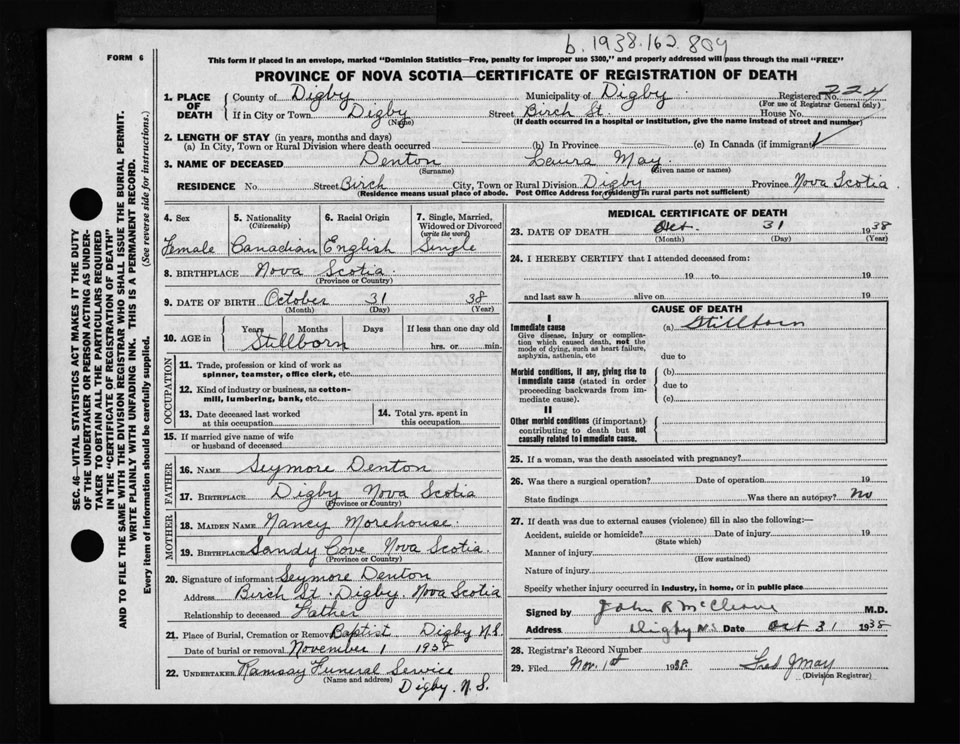 b. 1938.162.804
FORM 6
This form if placed in an envelope, marked "Dominion Statistics—Free, penalty for improper use $300," and properly addressed will pass through the mail "FREE"
PROVINCE OF NOVA SCOTIA—CERTIFICATE OF REGISTRATION OF DEATH
1. PLACE OF DEATH
County of Digby Municipality of Digby Registered No. 224
(For use of Registrar General only)
If in City or Town Digby Street Birch St. House No.
(Name) (If death occurred in a hospital or institution, give the name instead of street and number)
2. LENGTH OF STAY (in years, months and days)
(a) In City, Town or Rural Division where death occurred (b) In Province (c) In Canada (if immigrant)
3. NAME OF DECEASED Denton Laura May
(Surname) (Given name or names)
RESIDENCE No. Street Birch City, Town or Rural Division Digby Province Nova Scotia
(Residence means usual place of abode. Post Office Address for residents in rural parts not sufficient)
4. Sex
Female
5. Nationality
(Citizenship)
Canadian
6. Racial Origin
English
7. Single, Married, Widowed or Divorced
(write the word)
Single
8. BIRTHPLACE Nova Scotia
(Province or Country)
9. DATE OF BIRTH October 31 38
(Month) (Day) (Year)
10. AGE in
Years Months Days If less than one day old
Stillborn hrs. or min.
OCCUPATION
11. Trade, profession or kind of work as
spinner, teamster, office clerk, etc.
12. Kind of industry or business, as cotton-
mill, lumbering, bank, etc.
13. Date deceased last worked
at this occupation
14. Total yrs. spent in
this occupation
15. If married give name of wife
or husband of deceased
FATHER
16. NAME Seymore Denton
17. BIRTHPLACE Digby Nova Scotia
(Province or Country)
MOTHER
18. MAIDEN NAME Nancy Morehouse
19. BIRTHPLACE Sandy Cove Nova Scotia
(Province or Country)
20. Signature of informant Seymore Denton
Address Birch St. Digby. Nova Scotia
Relationship to deceased Father
21. Place of Burial, Cremation or Removal Baptist Digby N.S.
Date of burial or removal November 1 1938
22. UNDERTAKER Ramsay Funeral Service
(Name and address) Digby. N.S.
MEDICAL CERTIFICATE OF DEATH
23. DATE OF DEATH Oct. 31 1938
(Month) (Day) (Year)
24. I HEREBY CERTIFY that I attended deceased from:
19 to 19
and last saw h alive on 19
CAUSE OF DEATH
I
Immediate cause (a) Stillborn
Give disease, injury or complica-
tion which caused death, not the
mode of dying, such as heart failure,
asphyxia, asthenia, etc
due to
Morbid conditions, if any, giving rise to
immediate cause (stated in order
proceeding backwards from im-
mediate cause).
(b)
due to
(c)
II
Other morbid conditions (if important)
contributing to death but not
causally related to immediate cause.
25. If a woman, was the death associated with pregnancy?
26. Was there a surgical operation? Date of operation 19
State findings Was there an autopsy? No
27. If death was due to external causes (violence) fill in also the following:—
Accident, suicide or homicide? Date of injury 19
(State which)
Manner of injury
(How sustained)
Nature of injury
Specify whether injury occurred in industry, in home, or in public place
Signed by John R McCleave M.D.
Address Digby N.S. Date Oct 31 1938
28. Registrar's Record Number
29. Filed Nov. 1st 1938. Fred J May
(Division Registrar)
SEC. 46—VITAL STATISTICS ACT MAKES IT THE DUTY
OF THE UNDERTAKER OR PERSON ACTING AS UNDER-
TAKER TO OBTAIN ALL THE PARTICULARS REQUIRED
IN THE "CERTIFICATE OF REGISTRATION OF DEATH"
AND TO FILE THE SAME WITH THE DIVISION REGISTRAR WHO SHALL ISSUE THE BURIAL PERMIT.
WRITE PLAINLY WITH UNFADING INK. THIS IS A PERMANENT RECORD.
Every item of information should be carefully supplied. (See reverse side for instructions.)